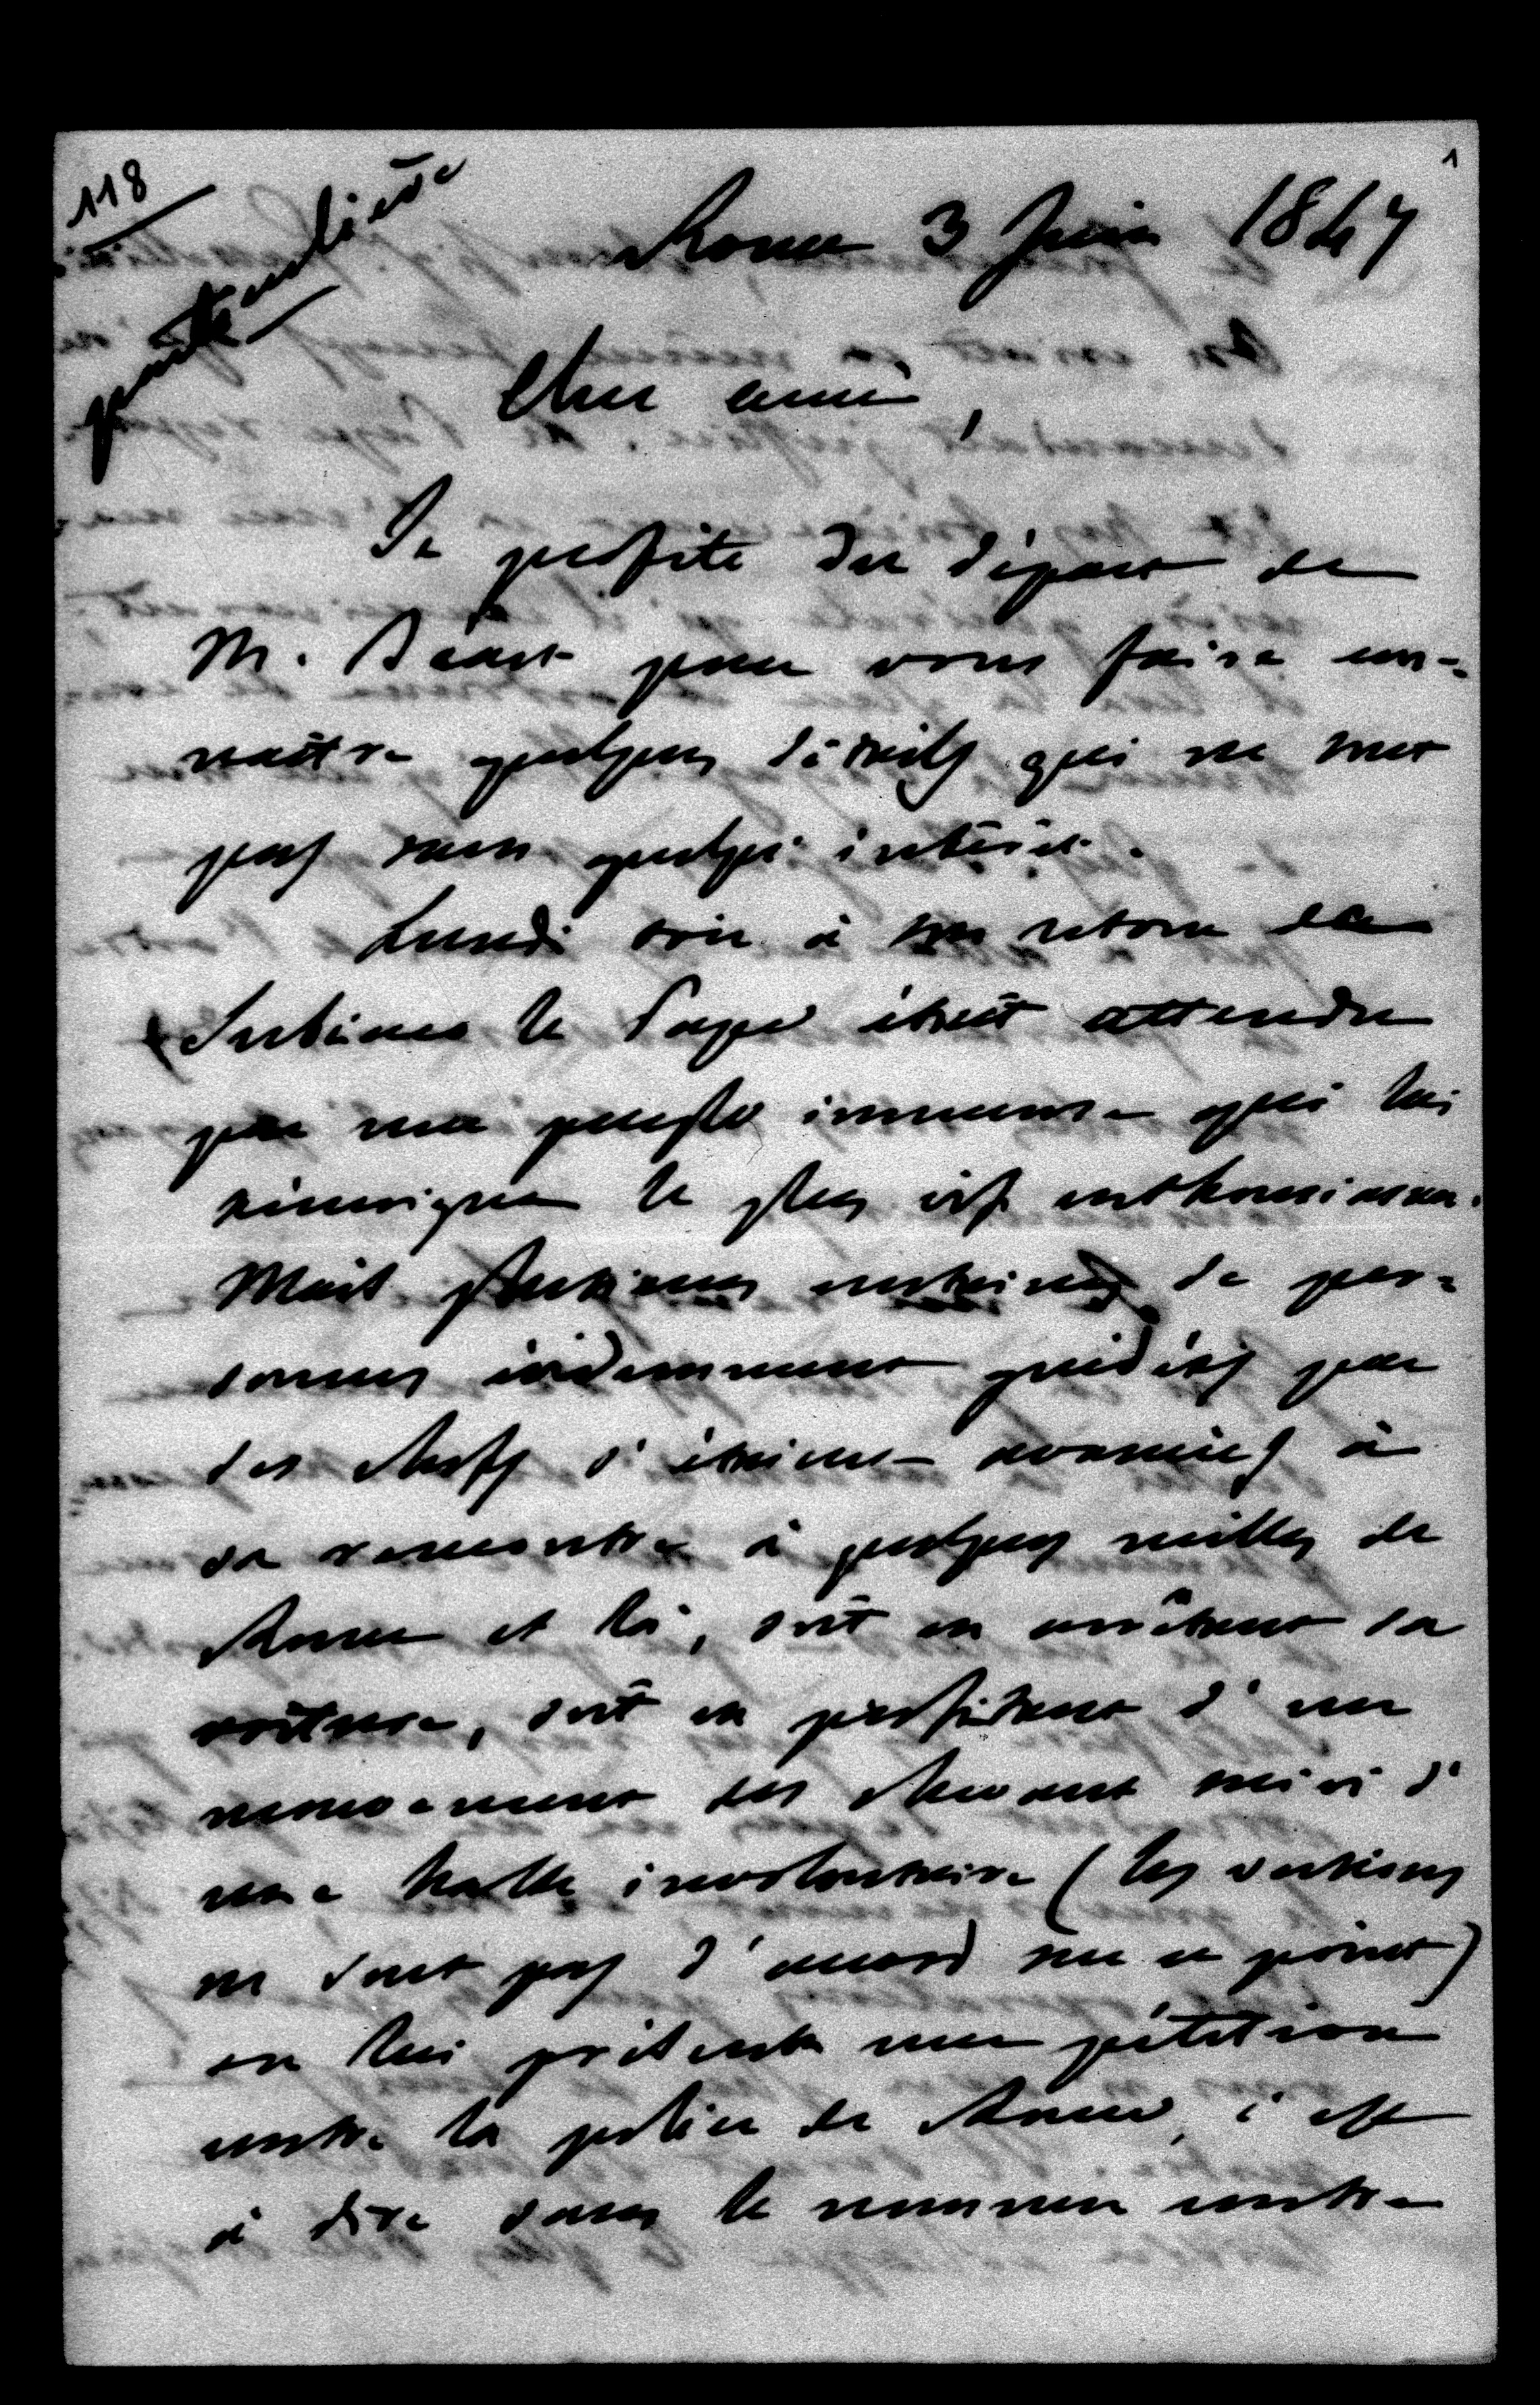 118
1
particulière
Rome 3 Juin 1847
Cher ami,
Je profite du départ de
M. Béart pour vous faire con-
naître quelques détails qui ne sont
pas sans quelque intérêt.
Lundi soir à son retour de
Subiaco le Pape était attendu
par une foule immense qui lui
témoigna le plus vif enthousiasme.
Mais plusieurs centaines de per-
sonnes évidemment guidées par
des chefs s'étaient avancées à
sa rencontre à quelques milles de
Rome et là, soit en arrêtant sa
voiture, soit en profitant d'un
mouvement des chevaux suivi d'
une halte involontaire (les versions
ne sont pas d'accord sur ce point)
on lui présenta une pétition
contre la police de Rome, c'est
à dire sans le nommer contre